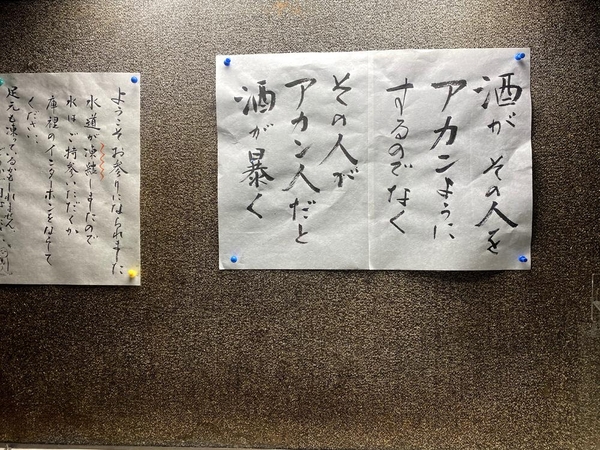 酒が その人を
アカンように
するのでなく
その人が
アカン人だと
酒が暴く
ようこそお参りになられました
水道が凍しましたので
水はご持参いただくか
庫裡のインターホンをならして
ください。
足元も凍っているかもしれません。